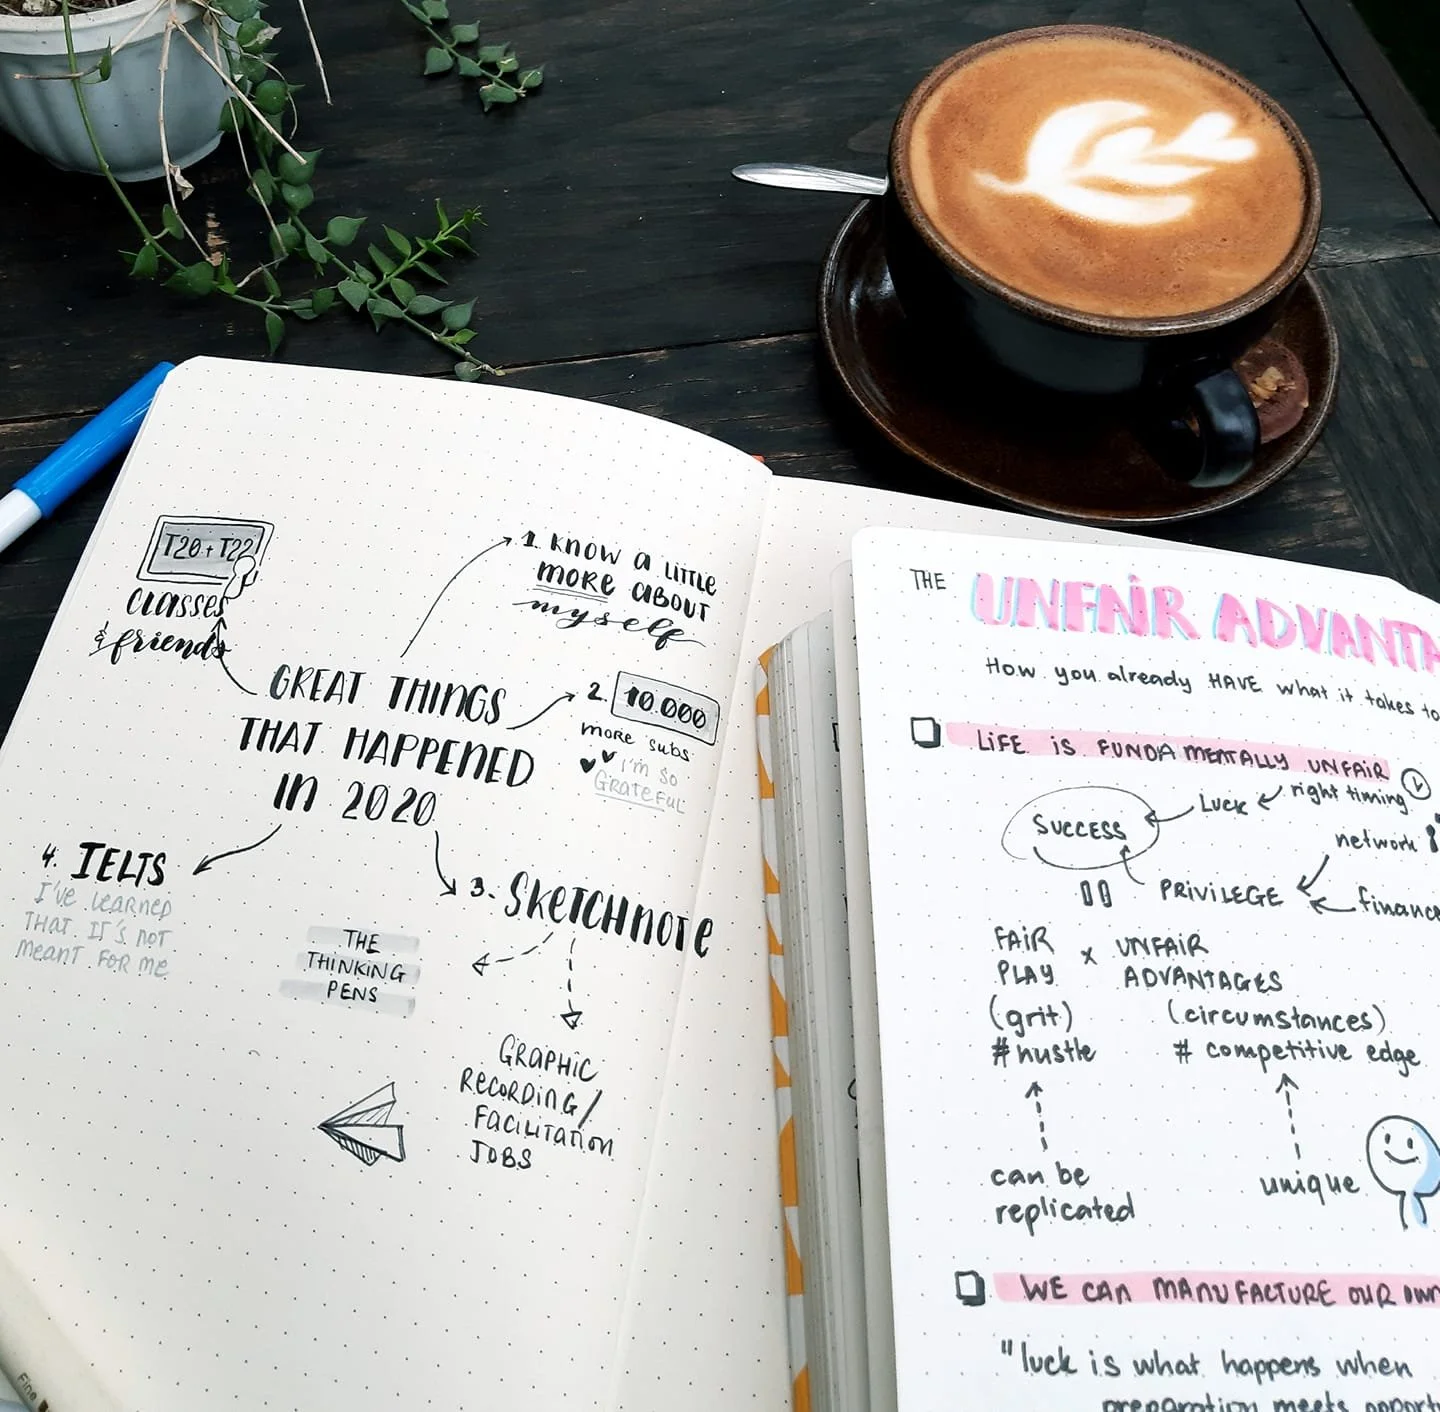 T20 + T22
CLASSES
& friends
GREAT THINGS
THAT HAPPENED
IN 2020
1. KNOW A LITTLE
MORE ABOUT
myself
2. 10.000
MORE SUBS
I'M SO
GRATEFUL
3. SKETCHNOTE
THE
THINKING
PENS
GRAPHIC
RECORDING/
FACILITATION
JOBS
4. IELTS
I'VE LEARNED
THAT IT'S NOT
MEANT FOR ME
Fine
THE UNFAIR ADVANTA
How you already HAVE what it takes to
LIFE IS FUNDAMENTALLY UNFAIR
SUCCESS
Luck
right timing
network
PRIVILEGE
finance
FAIR
PLAY
(grit)
#hustle
x
UNFAIR
ADVANTAGES
(circumstances)
# competitive edge
can be
replicated
unique
WE CAN MANUFACTURE OUR OWN
"luck is what happens when
preparation meets opport